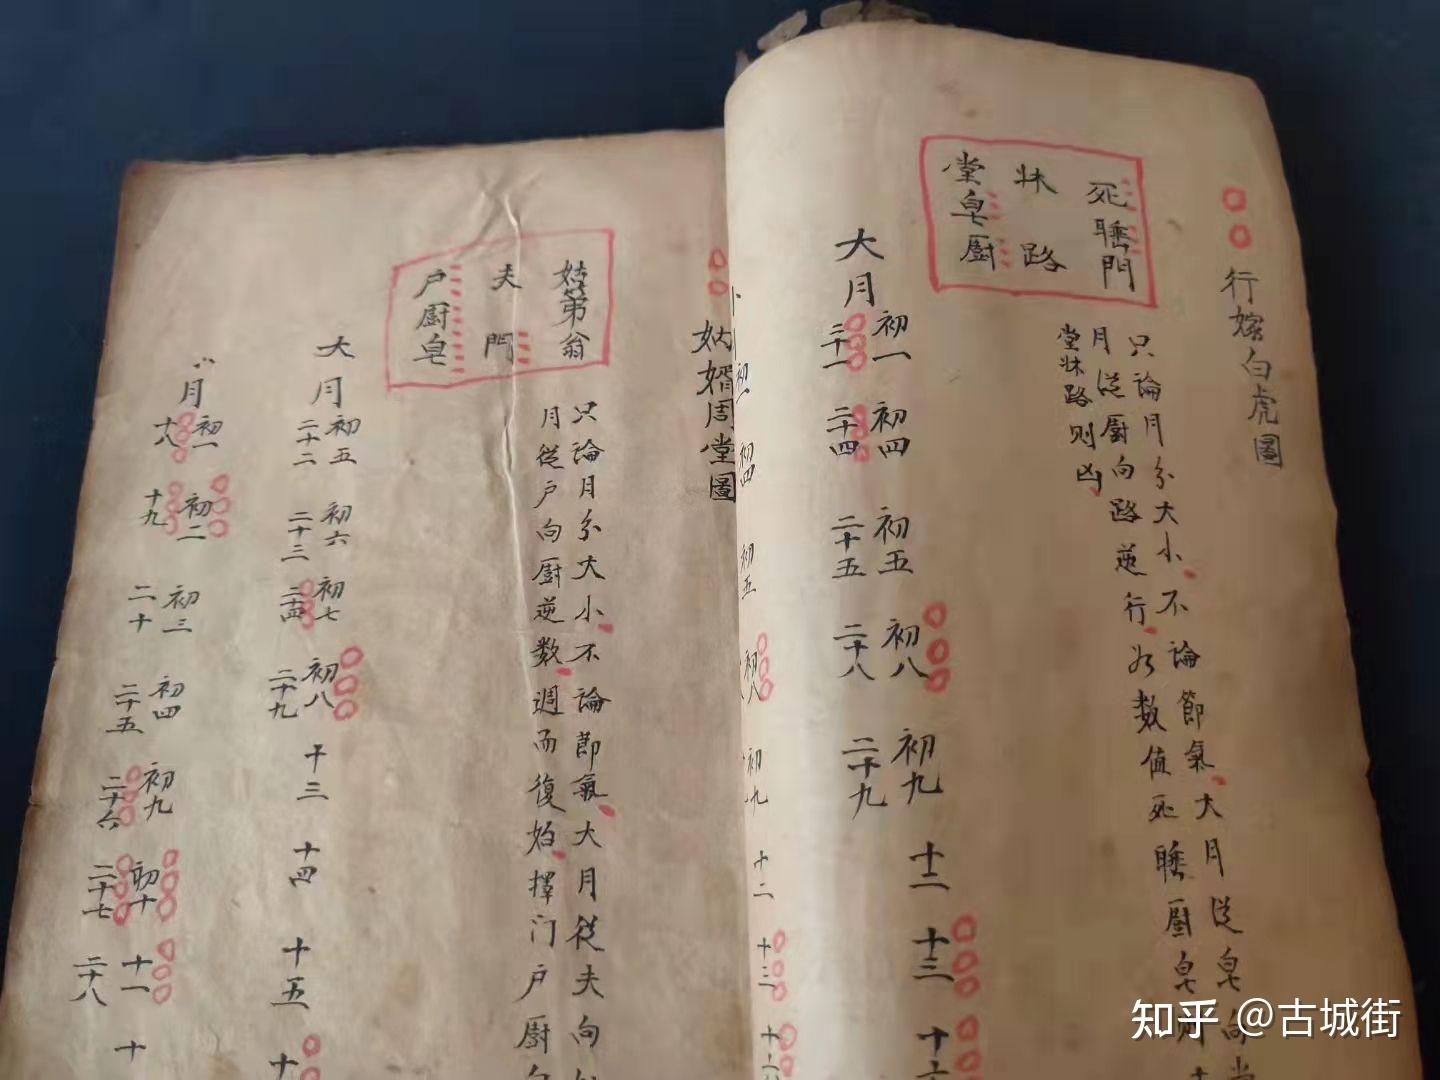 行嫁白虎圖
死睡門
牀路
堂皂厨
只論月分大小不論節氣大月從皂向堂
月從厨向路逆行以数值死睡厨皂則
堂牀路则凶
大月
初一
二十一
初四
二十四
初五
二十五
初八
二十八
初九
二十九
十二
十三
十六
初一
初四
初五
初八
初九
十二
十三
十六
姑婿周堂圖
姑弟翁
夫門
户厨皂
只論月分大小不論節氣大月從夫向
月從户向厨逆数週而復始擇门户厨
大月
初五
二十二
初六
二十三
初七
二十四
初八
二十九
十三
十四
十五
月
初一
十八
初二
十九
初三
二十
初四
二十五
初九
二十六
初十
二十七
十一
二十八
十
知乎 @古城街